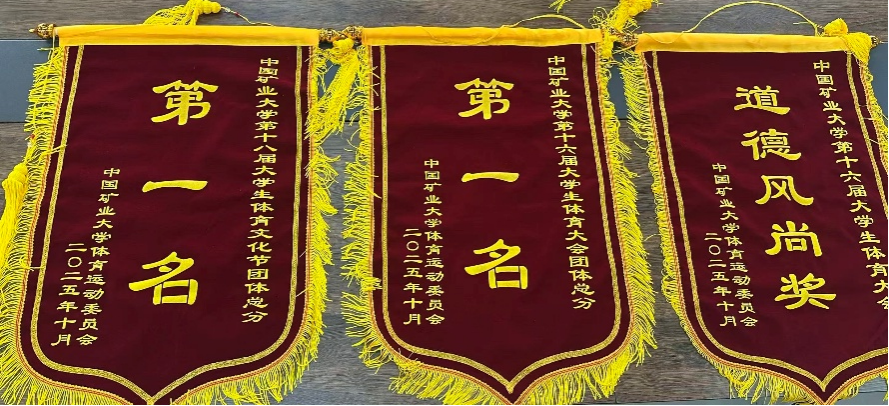 中国矿业大学第十八届大学生体育文化节团体总分
第一名
中国矿业大学体育运动委员会
二〇二五年十月
中国矿业大学第十六届大学生体育大会团体总分
第一名
中国矿业大学体育运动委员会
二〇二五年十月
中国矿业大学第十六届大学生体育大
道德风尚奖
中国矿业大学体育运动委员会
二〇二五年十月